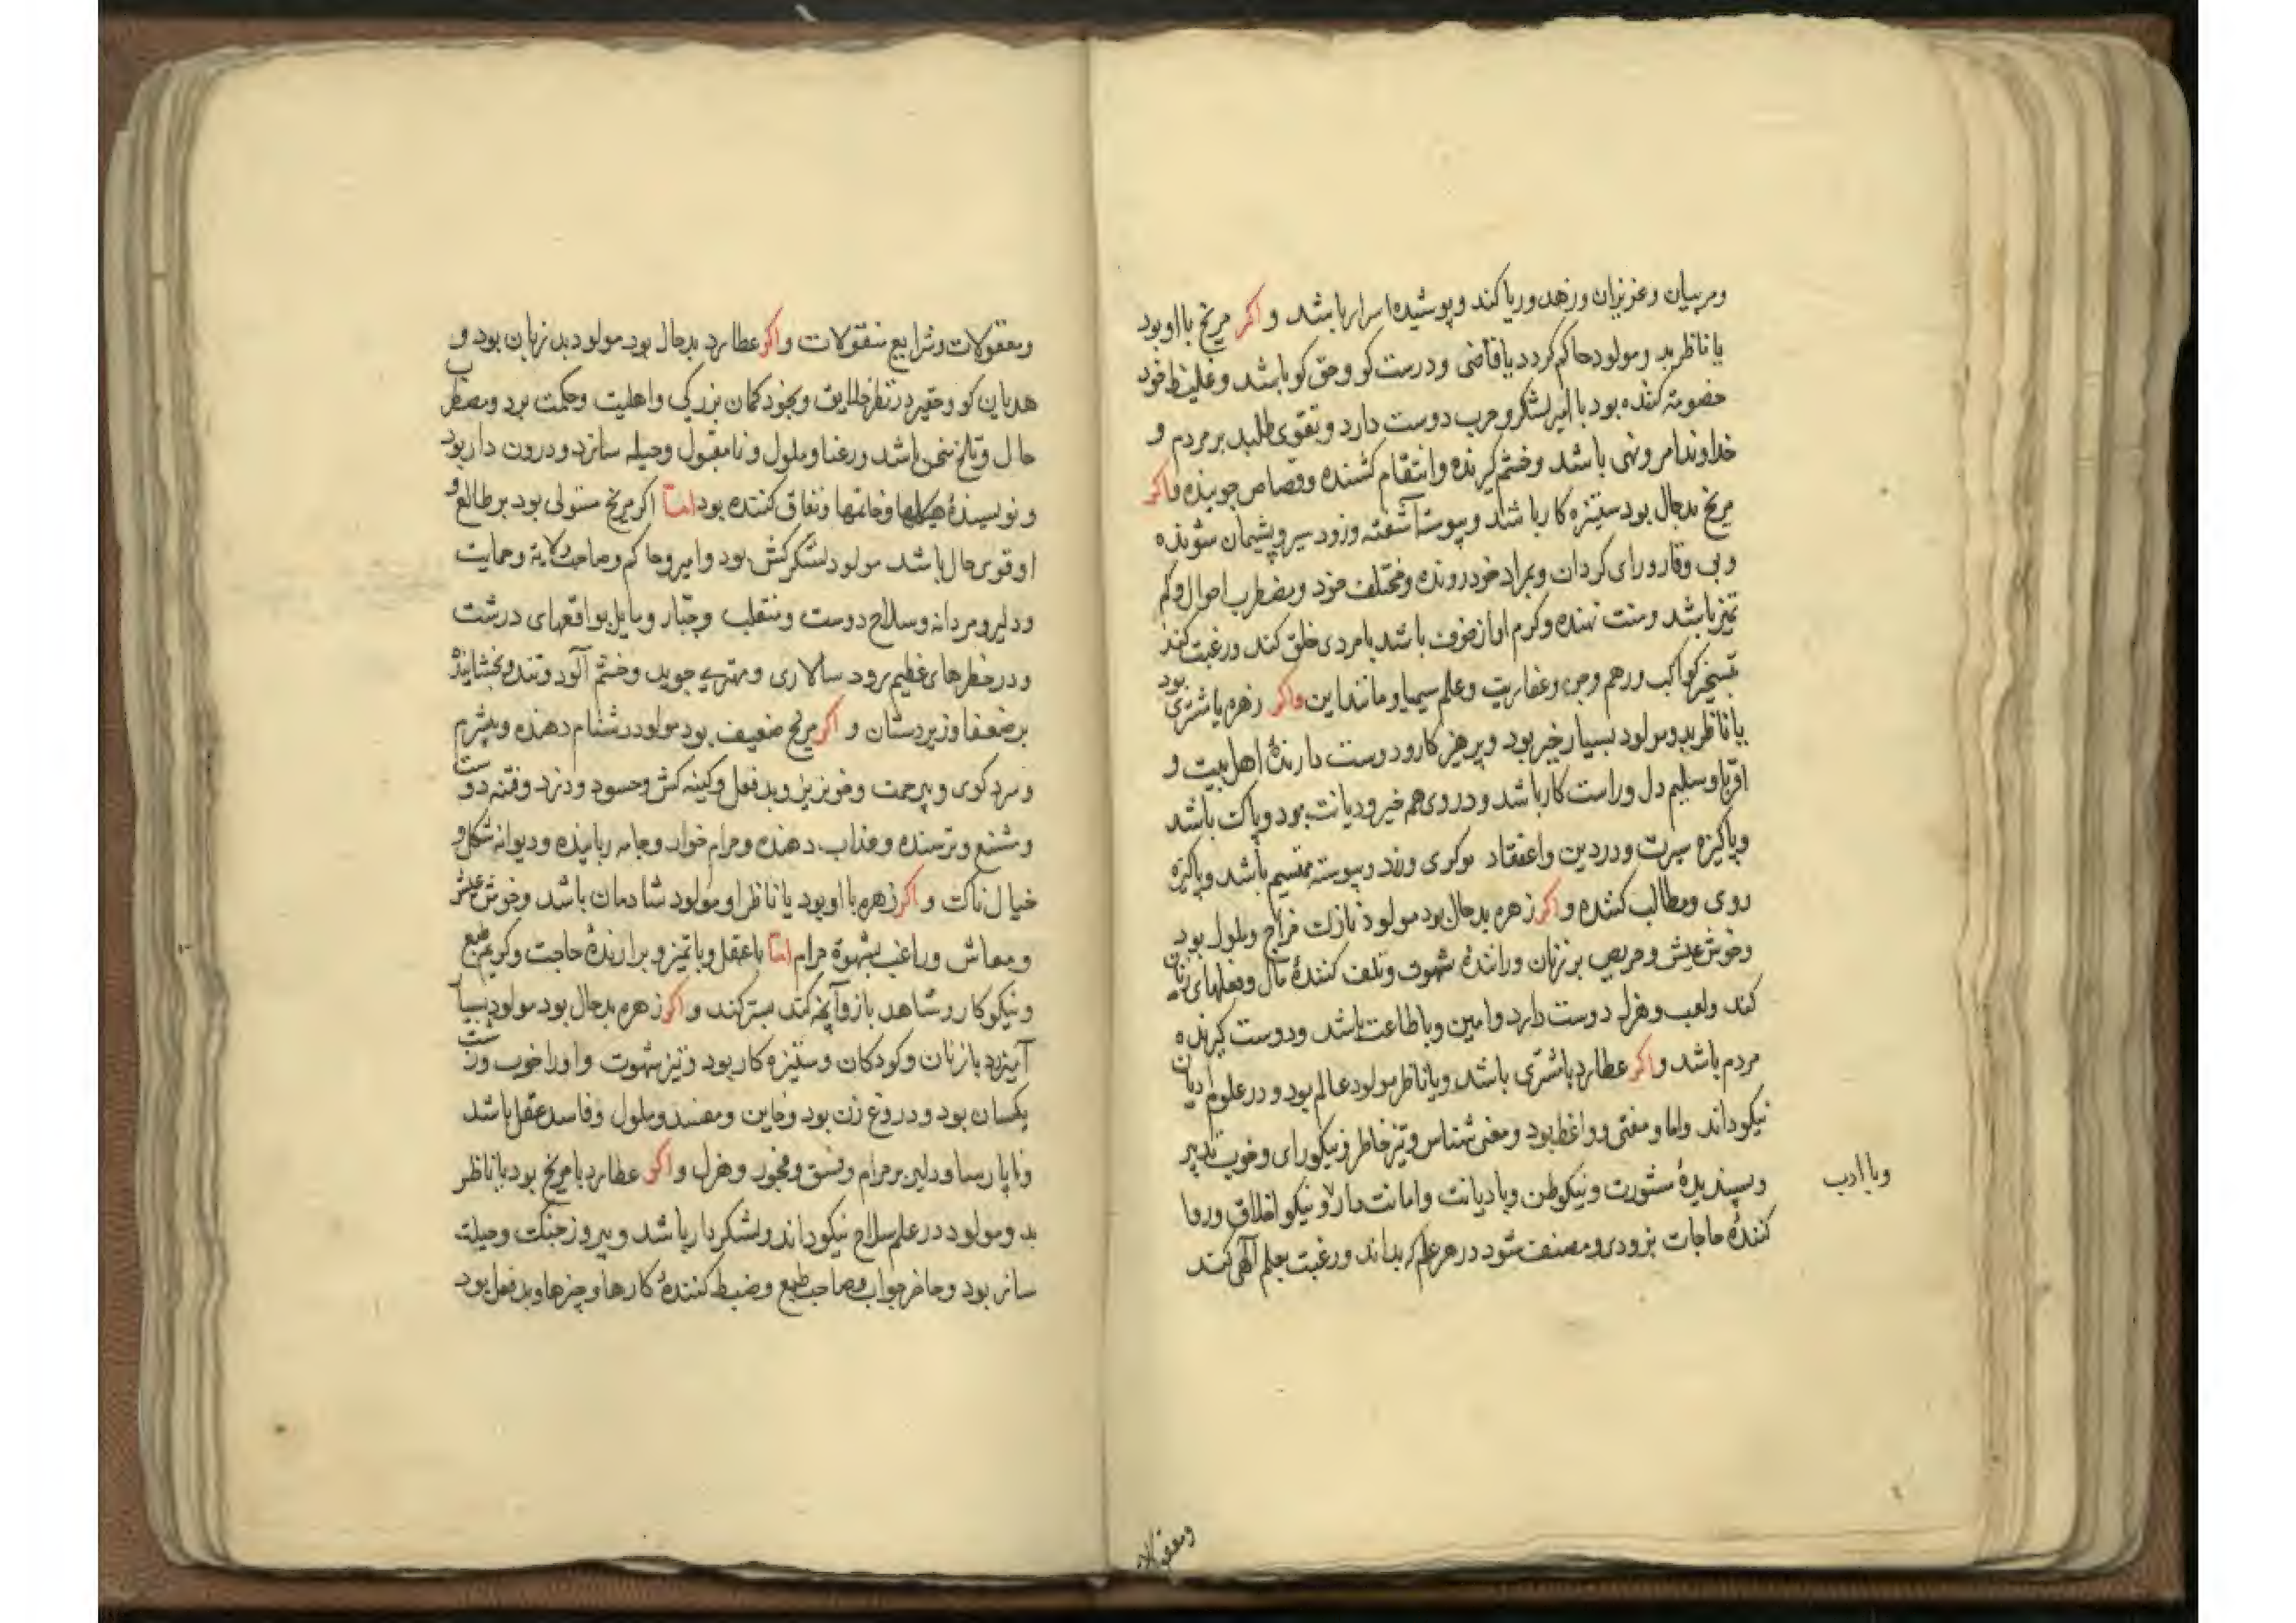 ومربیان وعزیزان ورزهد وریا کند وپوشیده اسرار باشد و اکر مریخ با او بود
یا ناظر بد ومولود حاکم کردد یا قاضی ودرست کو وحق کو باشد وغلیظ خود
خصومة کننده بود با امیر لشکر وحرب دوست دارد وتقوی طلبد بر مردم و
خداوند امر ونهی باشد وخشم کیرنده وانتقام کشنده وقصاص جوینده واکر
مریخ بدحال بود ستیزه کار باشد وپیوسته آشفته وزود سیر وپشیمان شونده
وبی وقار ورای کردان وبمراد خود رونده ومختلف خود ومضطرب احوال وکم
تمیز باشد ومنت نهنده وکرم او از خوف باشد با مردی خلق کند ورغبت کند
تسخیر کواکب ورهم وجن وعفاریت وعلم سیمیا ومانند این واکر زهره با مشتری بود
یا ناظر بدو مولود بسیار خیر بود وپرهیزکار ودوست دارندۀ اهل بیت و
اقربا وسلیم دل وراست کار باشد ودر وی هم خیر ودیانت بود وپاک باشد
وپاکیزه سیرت ودر دین واعتقاد نیکوی ورزد وپیوسته متبسم باشد وپاکیزه
روی ومطالب کننده واکر زهره بدحال بود مولود نازک مزاج وملول بود
وخوش عیش وحریص بر زنان ورانندۀ شهوت وتلف کنندۀ مال وفعلهای زنان
کند ولعب وهزل دوست دارد وامین وبا طاعت باشد ودوست کیرنده
مردم باشد واکر عطارد با مشتری باشد ویا ناظر مولود عالم بود ودر علوم ادیان
نیکو داند واما ومفتی وواعظ بود ومعنی شناس وتیز خاطر ونیکورای وخوب تدبیر
وپسندیدۀ مشورت ونیکوظن وبا دیانت وامانت دار ونیکو اخلاق وروا
وبا ادب
کنندۀ حاجات بزودی ومصنف شود در هر علم که بداند ورغبت بعلم آلهی کند
ومعقولات
ومعقولات وشرایع منقولات واکر عطارد بدحال بود مولود بد زبان بود و
هدیان کو وحقیر در نظر خلایق وبخود کمان بزرکی واهلیت وحکمت برد ومضطرب
حال وتلخ سخن باشد ورعنا وملول ونامقبول وحیله سازد ودرون دار بود
ونویسندۀ هیکلها وخاتمها ونفاق کننده بود امّا اکر مریخ مستولی بود بر طالع و
او قوی حال باشد مولود لشکرکش بود وامیر وحاکم وصاحب ولایة وحمایت
ودلیر ومردانه وسلاح دوست ومتقلب وجبّار ومایل بواقعهای درشت
ودر خطرهای عظیم رود سالاری ومهتری جوید وخشم آلود وتند وبخشایندۀ
بر ضعفا وزیردستان و اکر مریخ ضعیف بود مولود دشنام دهنده وبیشرم
وسرد کوی وبیرحمت وخونریز وبدفعل وکینه کش وحسود ودزد وفتنه دوست
وشنع وترسنده وعذاب دهنده وحرام خوار وجامه رباینده ودیوانه شکل و
خیال ناک و اکر زهره با او بود یا ناظر او مولود شادمان باشد وخوش عیش
ومعاش وراغب بشهوة حرام امّا با عقل وبا تمیز وبرارندۀ حاجت وکریم طبع
ونیکوکار وشاهد باز وآنچه کند بستر کند و اکر زهره بدحال بود مولود بسیار
آمیزد با زنان وکودکان وستیزه کار بود وتیز شهوت واورا خوب وزشت
یکسان بود ودروغ زن بود وخاین ومفسد وملول وفاسد عقل باشد
وناپارسا ودلیر بر حرام وفسق وفجور وهزل و اکر عطارد با مریخ بود یا ناظر
بد ومولود در علم سلاح نیکو داند ولشکردار باشد وپیروز جنک وحیلت
ساز بود وحاضر جواب وصاحب طبع وضبط کنندۀ کارها وچیزها وبدفعل بود